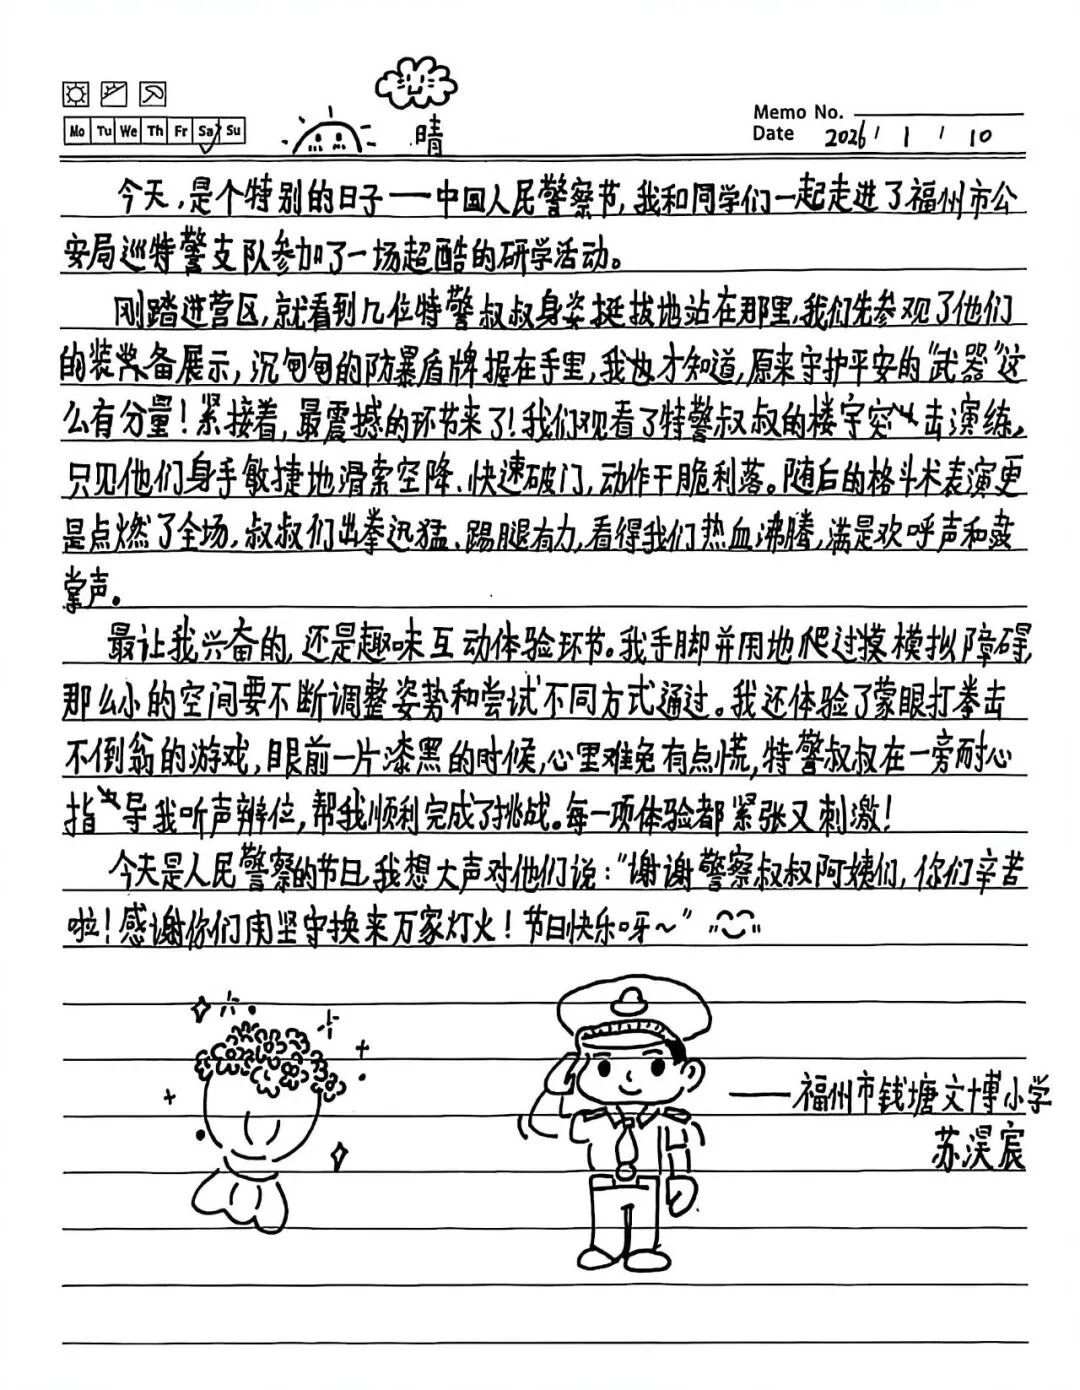 Mo Tu We Th Fr Sa Su
晴
Memo No.
Date 2026 / 1 / 10
今天,是个特别的日子——中国人民警察节,我和同学们一起走进了福州市公
安局巡特警支队参加了一场超酷的研学活动。
刚踏进营区,就看到几位特警叔叔身姿挺拔地站在那里,我们先参观了他们
的装备展示,沉甸甸的防暴盾牌握在手里,我也才知道,原来守护平安的“武器”这
么有分量!紧接着,最震撼的环节来了!我们观看了特警叔叔的楼宇突击演练,
只见他们身手敏捷地滑索空降、快速破门,动作干脆利落。随后的格斗术表演更
是点燃了全场,叔叔们出拳迅猛、踢腿有力,看得我们热血沸腾,满是欢呼声和鼓
掌声。
最让我兴奋的,还是趣味互动体验环节。我手脚并用地爬过模拟障碍,
那么小的空间要不断调整姿势和尝试不同方式通过。我还体验了蒙眼打拳击
不倒翁的游戏,眼前一片漆黑的时候,心里难免有点慌,特警叔叔在一旁耐心
指导我听声辨位,帮我顺利完成了挑战。每一项体验都紧张又刺激!
今天是人民警察的节日,我想大声对他们说:“谢谢警察叔叔阿姨们,你们辛苦
啦!感谢你们用坚守换来万家灯火!节日快乐呀~”
——福州市钱塘文博小学
苏淏宸